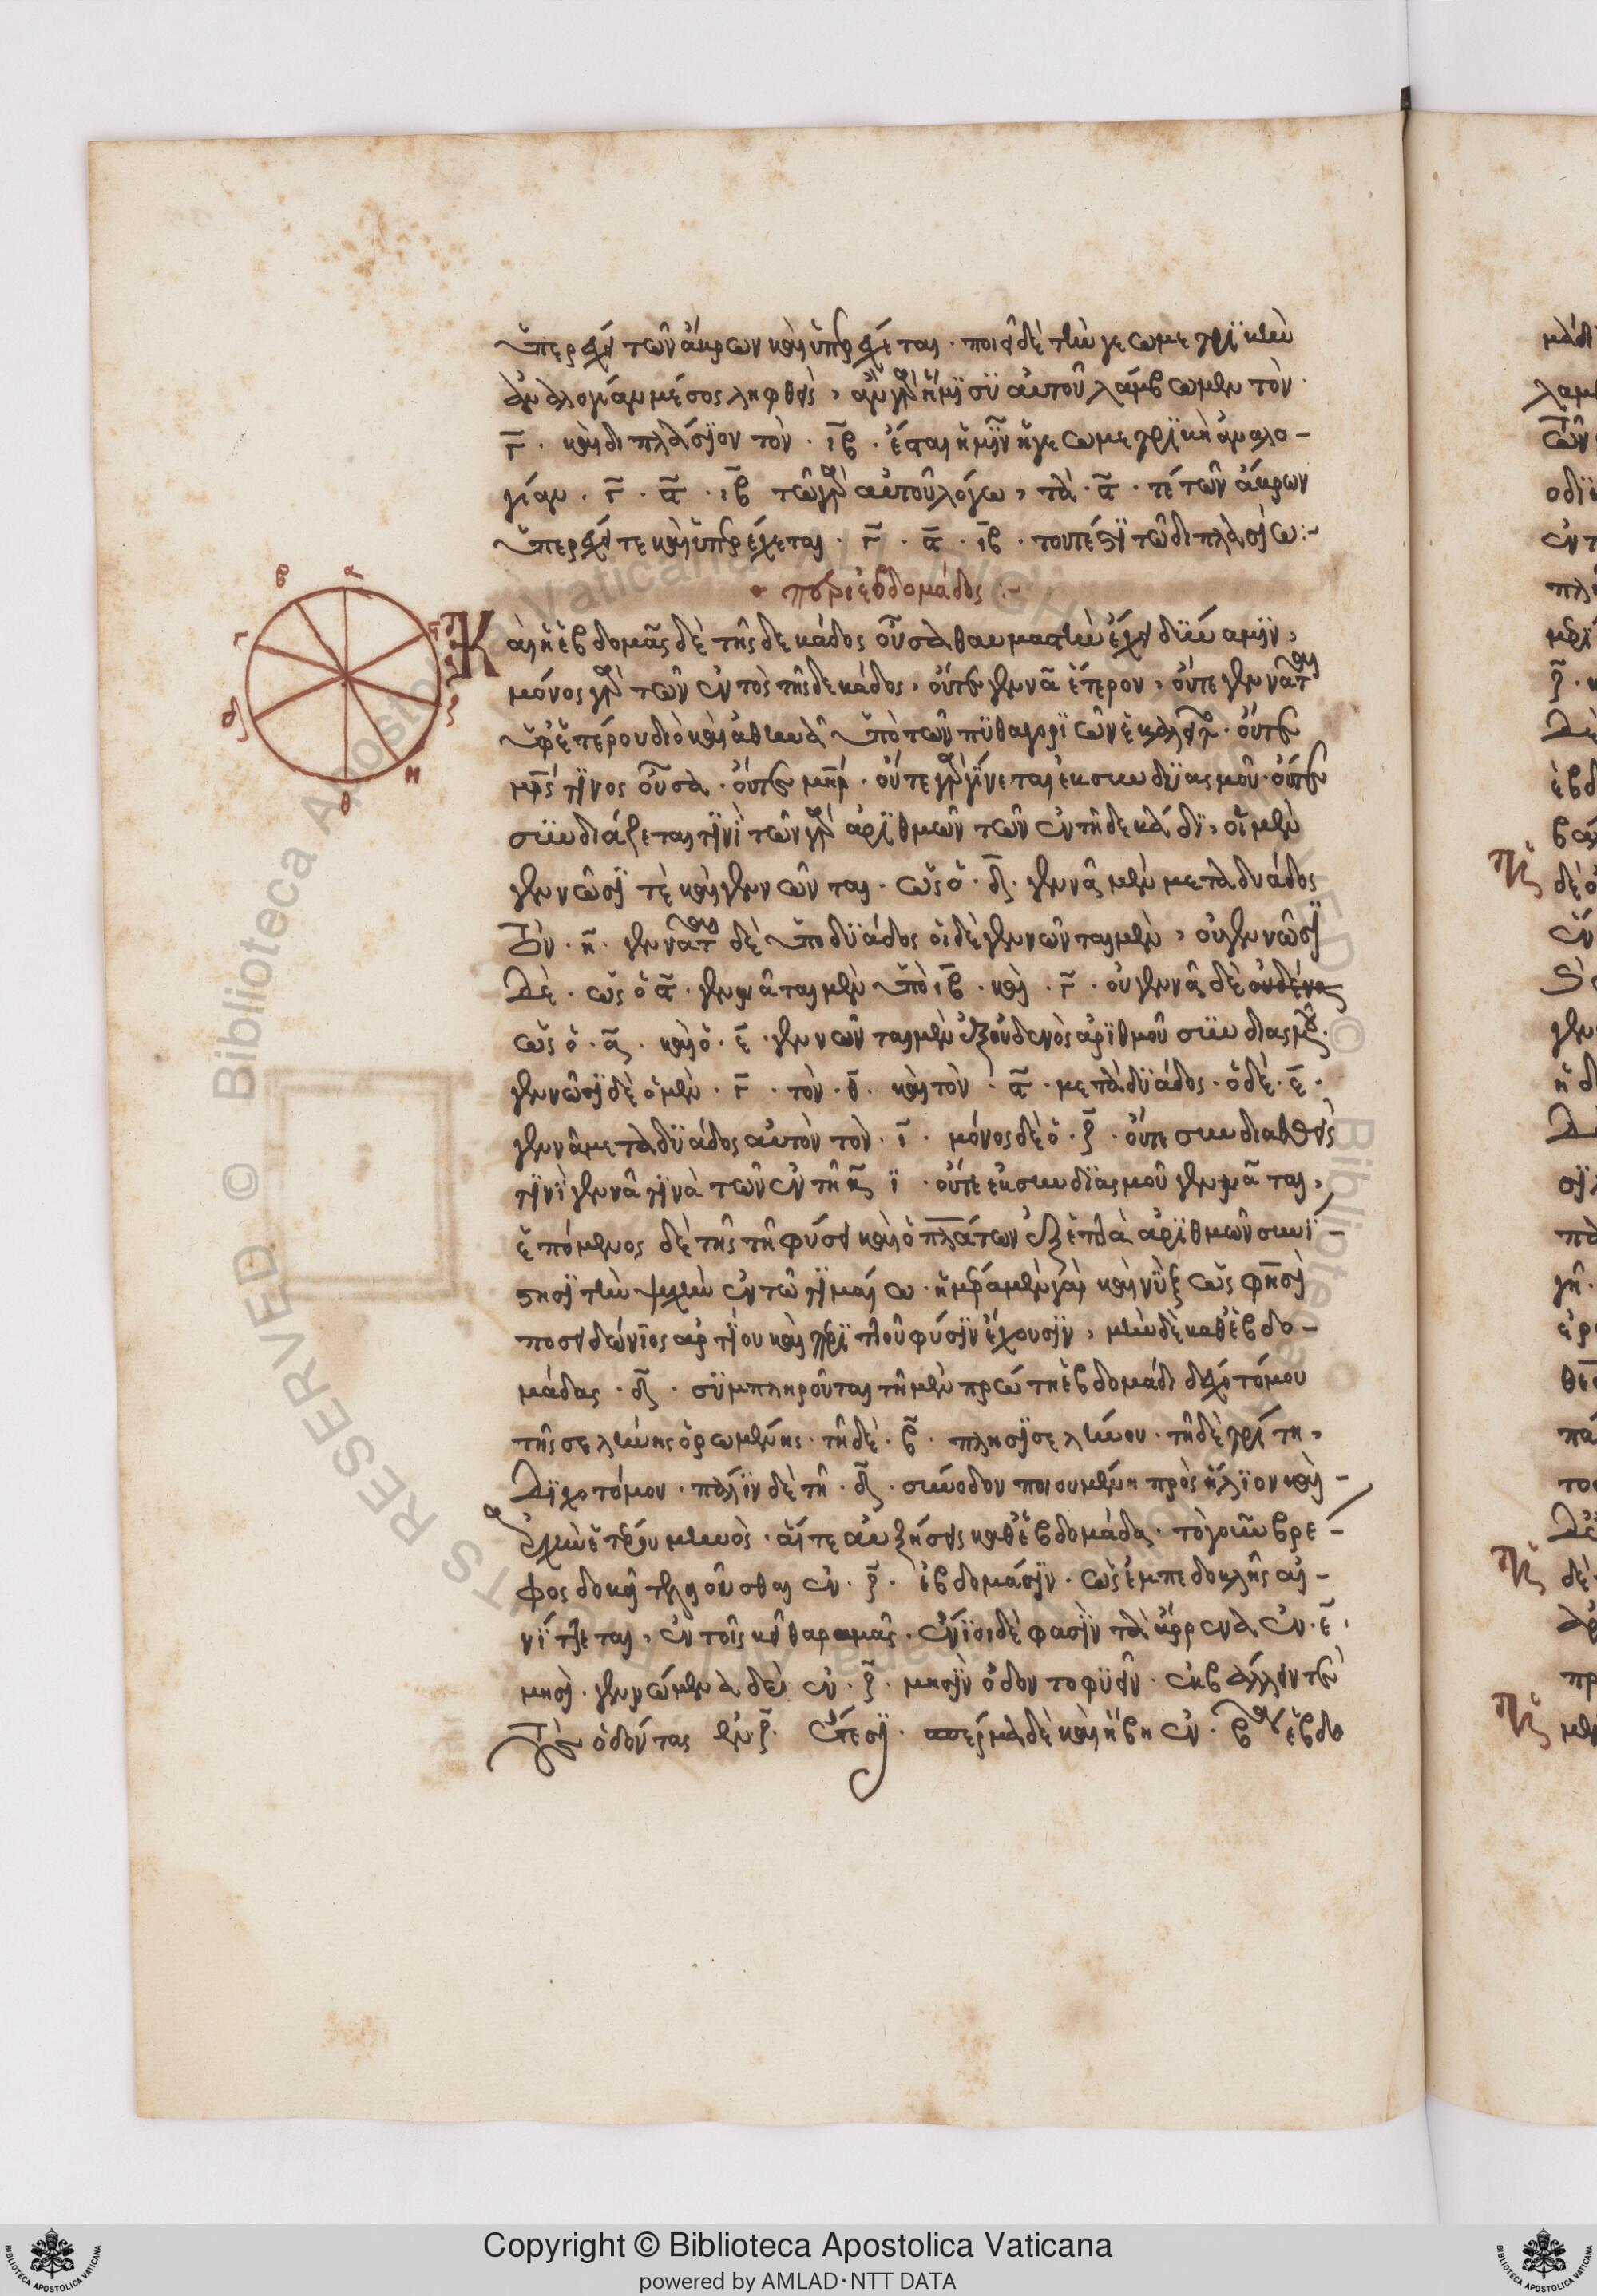 ὑπερέχει τῶν ἄκρων καὶ ὑπερέχεται · ποιεῖ δὲ τὴν γεωμετρϊκὴν
ἀναλογίαν μέσος ληφθεὶς, ἂν γὰρ ἥμϊσϋ αὐτοῦ λάμβωμεν τὸν ·
γ̅ · καὶ διπλάσϊον τὸν · ι̅β · ἔσται ἡμῖν ἡ γεωμετρϊκὴ ἀναλο-
γίαν · γ̅ · ϛ̅ · ι̅β τῶ γὰρ αὐτοῦ λόγω, τὰ · ϛ̅ · τέ τῶν ἄκρων
ὑπερέχει τε καὶ ὑπερέχεται · γ̅ · ϛ̅ · ι̅β · τουτέστϊ τῶ διπλασίω :-
περὶ ἑβδομάδος :-
Καὶ ἡ ἑβδομὰς δὲ τῆς δεκάδος οὖσα θαυμαστὴν ἔχει δύναμϊν,
μόνος γὰρ τῶν ἐντὸς τῆς δεκάδος, οὔτε γεννᾶ ἕτερον, οὔτε γεννᾶται
ὑφ' ἑτέρου διὸ καὶ ἀθηνᾶ ὑπὸ τῶν πϋθαγορϊῶν ἐκαλεῖτο · οὔτε
μρ̅ς τϊνος οὖσα · οὔτε μη̅ρ · οὔτε γὰρ γϊνεται ἐκ συνδϋασμοῦ · οὔτε
συνδιάζεται τϊνὶ τῶν γὰρ ἀρϊθμῶν τῶν ἐν τῆ δεκάδϊ, οἱ μὲν
γεννῶσϊ τὲ καὶ γεννῶνται · ὡς ὁ · δ̅ · γεννᾶ μὲν μετὰ δυάδος
τὸν · η̅ · γεννᾶται δὲ ὑπὸ δϋάδος οἱ δὲ γεννῶνται μὲν, οὐ γεννῶσϊ
δὲ · ὡς ὁ ϛ̅ · γεννᾶται μὲν ὑπὸ β̅ · καὶ · γ̅ · οὐ γεννᾶ δὲ οὐδένα
ὡς ὁ · α̅ · καὶ ὁ · ε̅ · γεννῶνται μὲν ἐξ οὐδενὸς ἀρϊθμοῦ συνδιασμοῦ ·
γεννῶσϊ δὲ ὁ μὲν · γ̅ · τὸν · θ̅ · καὶ τὸν · ϛ̅ · μετὰ δϋάδος · ὁ δὲ · ε̅ ·
γεννᾶ μετὰ δϋάδος αὐτὸν τὸν · ι̅ · μόνος δὲ ὁ · ζ̅ · οὔτε συνδιασθεὶς
τϊνὶ γεννᾶ τϊνὰ τῶν ἐν τῆ ι · οὔτε ἐκ συνδϊασμοῦ γεννᾶται,
ἑπόμενος δὲ τῆς τῆ φύσει καὶ ὁ πλάτων ἐξ ἑπτὰ ἀρϊθμῶν συνϊ-
στησϊ τὴν ψυχὴν ἐν τῶ τϊμαίω · ἡμέρα μὲν γὰρ καὶ νὺξ ὥς φησϊ
ποσειδώνϊος ἀρτϊου καὶ πρϊττοῦ φύσϊν ἔχουσϊν, μὴν δὲ καθ' ἑβδο-
μάδας · δ̅ · σϋμπληροῦται τῆ μὲν πρώτη ἑβδομάδι διχοτόμου
τῆς σελήνης ὁρωμένης · τῆ δὲ · β̅ · πλησϊσελήνου · τῆ δὲ τρίτη,
δϊχοτόμου · πάλϊν δὲ τῆ · δ̅ · σύνοδον ποιουμένη πρὸς ἥλϊον καὶ -
ἀρχὴν ἑτέρου μηνὸς · αἵ τε αὐξήσεις καθ' ἑβδομάδα · τὸ γοῦν βρε-
φος δοκεῖ τελειοῦσθαι ἐν · ζ̅ · ἑβδομάσϊν · ὡς ἐμπεδοκλῆς αἰ-
νίττεται, ἐν τοῖς καθαρμοῖς · ἔνϊοι δέ φασϊν τὰ ἄρρενα ἐν · ε̅ ·
μησϊ · γεννώμενα δὲ ἐν · ζ̅ · μησϊν ὀδοντοφϋεῖν · ἐκβάλλειν τε
τοὺς ὀδόντας ἐν · ζ̅ · ἔτεσϊ · σπέρμα δὲ καὶ ἥβη ἐν · β̅ ἑβδο
α
β
γ
δ
θ
η
ζ
Copyright © Biblioteca Apostolica Vaticana
powered by AMLAD·NTT DATA